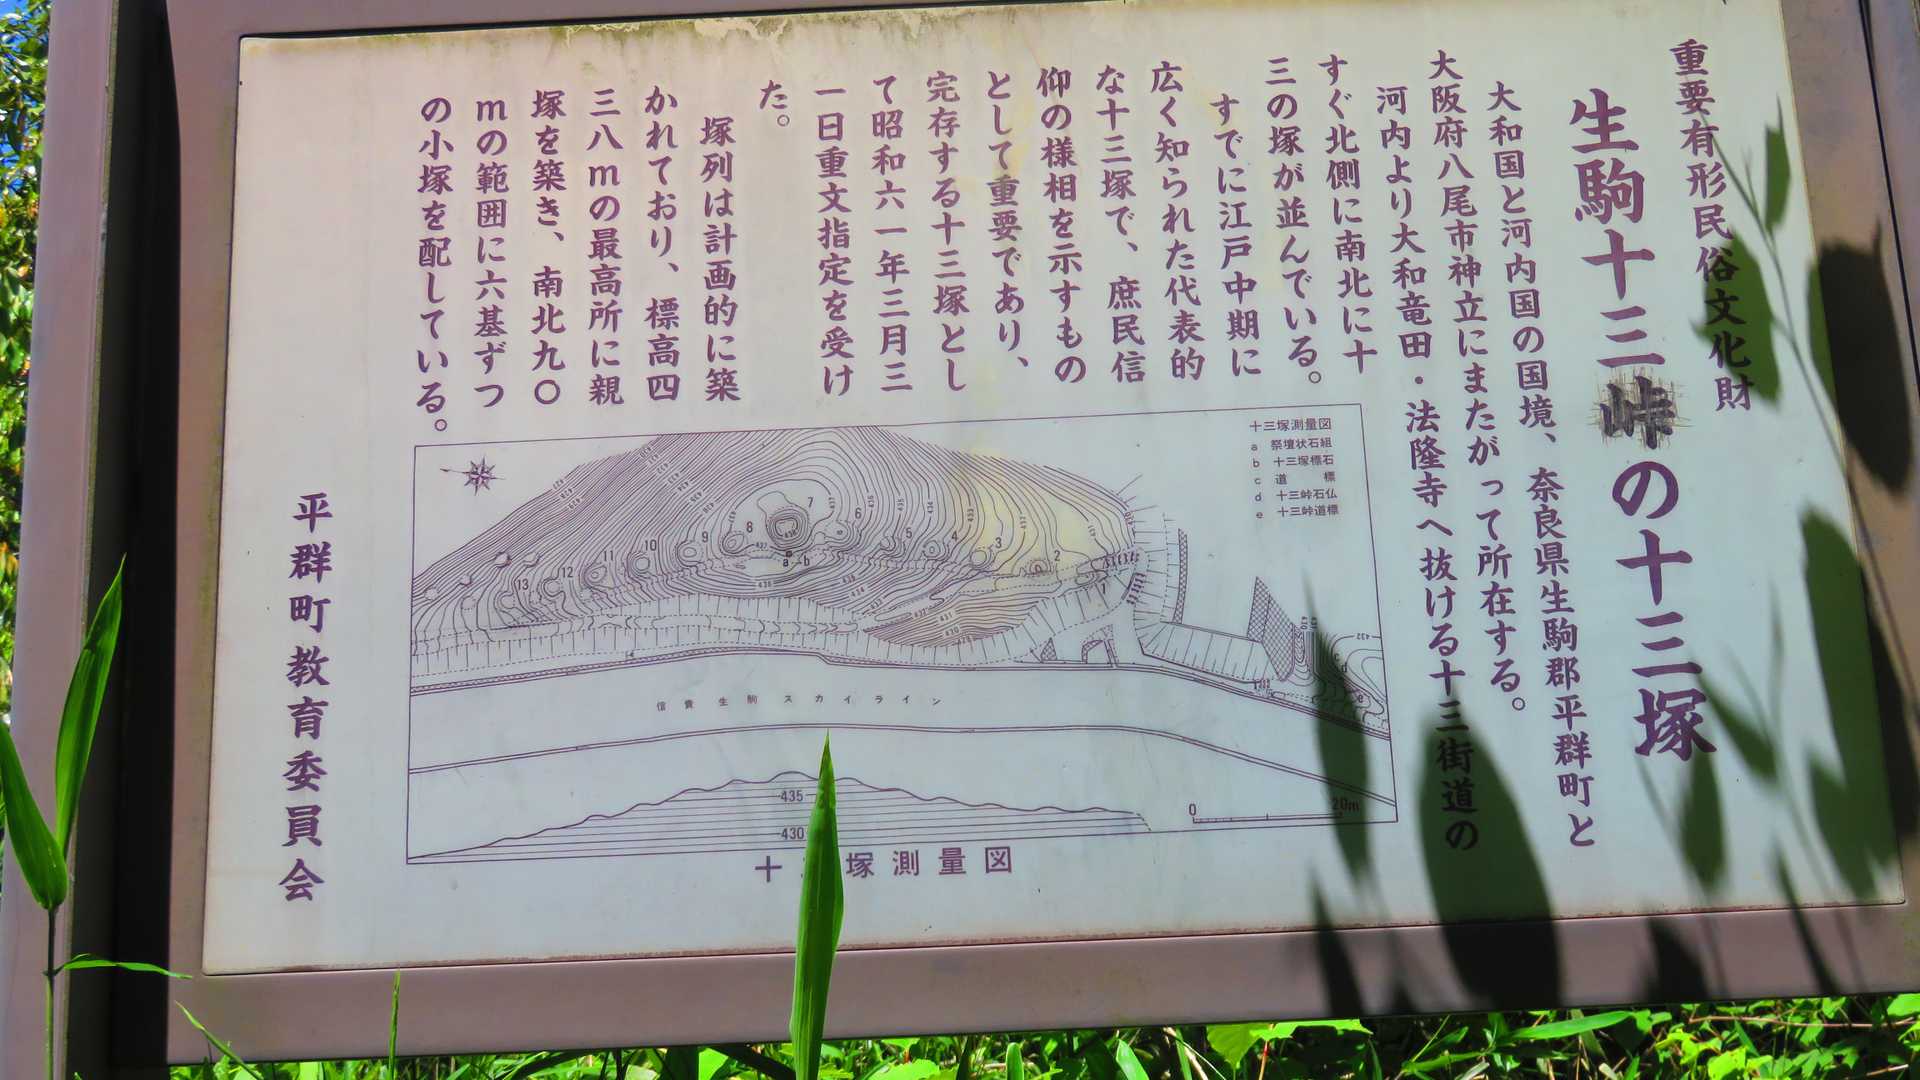 重要有形民俗文化財
生駒十三峠の十三塚
大和国と河内国の国境、奈良県生駒郡平群町と
大阪府八尾市神立にまたがって所在する。
河内より大和竜田・法隆寺へ抜ける十三街道の
すぐ北側に南北に十
三の塚が並んでいる。
すでに江戸中期に
広く知られた代表的
な十三塚で、庶民信
仰の様相を示すもの
として重要であり、
完存する十三塚とし
て昭和六一年三月三
一日重文指定を受け
た。
塚列は計画的に築
かれており、標高四
三八mの最高所に親
塚を築き、南北九〇
mの範囲に六基ずつ
の小塚を配している。
平群町教育委員会
十三塚測量図
a 祭壇状石組
b 十三塚標石
c 道標
d 十三峠石仏
e 十三峠道標
13 12 11 10 9 8 7 6 5 4 3 2 1
a b
c d e
信貴生駒スカイライン
435
430
0 20m
十 塚測量図